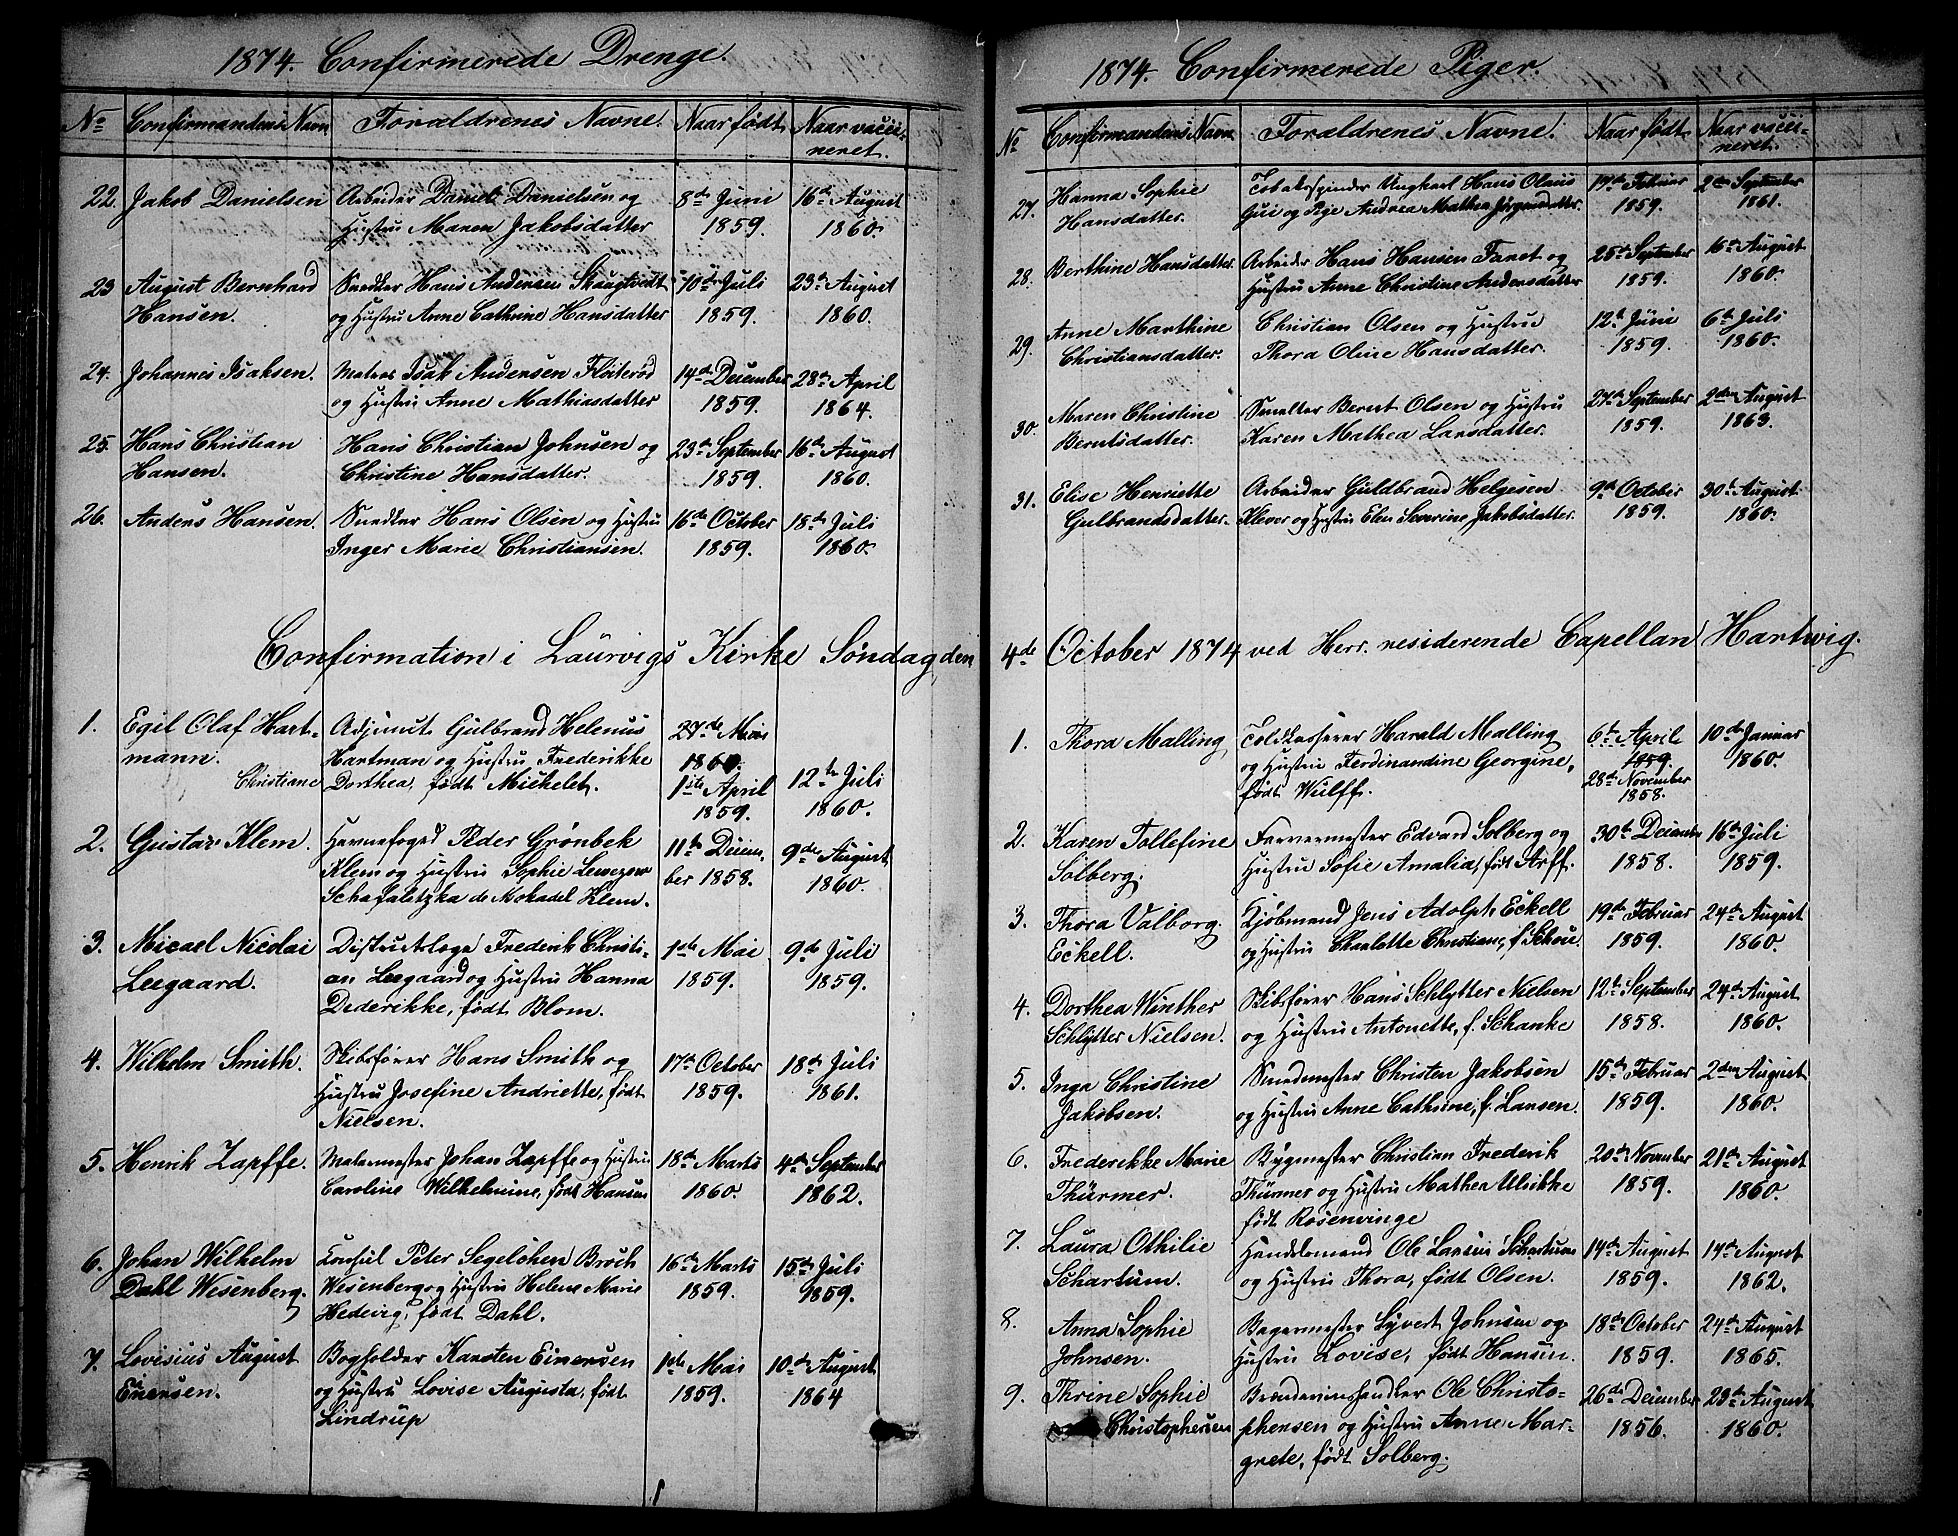 1874. Confirmerede Drenge.
No Confirmandens Navn Forældrenes Navne. Naar født Naar vacci-
neret.
22. Jakob Danielsen Arbeider Daniel Danielsen og 8de Juni 16de August
Hustru Maren Jakobsdatter 1859. 1860.
23 August Bernhard Snedker Hans Andersen Skaugtvedt 10de Juli 23de August
Hansen. og Hustru Anne Cathrine Hansdatter 1859. 1860.
24. Johannes Isaksen. Matros Isak Andersen Fløiterød 14de December 28de April
og Hustru Anne Mathiasdatter 1859. 1864.
25. Hans Christian Hans Christian Johnsen og 23de September 16de August
Hansen. Christine Hansdatter. 1859. 1860.
26. Anders Hansen. Snedker Hans Olsen og Hustru 16de October 18de Juli
Inger Marie Christiansen. 1859. 1860.
Confirmation i Laurvigs Kirke Søndag den
1. Egil Olaf Hart- Adjunct Gulbrand Helenus 27de
mann. Hartman og Hustru Frederikke 1860.
Christiane Dorthea, født Michelet. 1ste April 12te Juli
1859. 1860.
2. Gustav Klem. Havnefoged Peder Grønbek 11te Decem- 9de August
Klem og Hustru Sophie ber 1858. 1860.
Schafalitzka de Mokadel Klem.
3. Micael Nicolai Districtslæge Frederik Christi- 1ste Mai 9de Juli
Leegaard. an Leegaard og Hustru Hanna 1859. 1859.
Dederikke, født Blom.
4. Wilhelm Smith. Skibsfører Hans Smith og 17de October 18de Juli
Hustru Josefine Andriette, født 1859. 1861.
Nielsen.
5. Henrik Zapffe. Malermester Johan Zapffe og Hustru 18de Marts 4de September
Caroline Wilhelmine, født Hansen 1860. 1862.
6. Johan Wilhelm Consul Peter Segelcken Broch 16de Marts 15de Juli
Dahl Wesenberg. Wesenberg og Hustru Helene Marie 1859. 1859.
Hedevig, født Dahl.
7. Lovisius August Bogholder Karsten Einersen 1ste Mai 10de August
Einersen. og Hustru Lovise Augusta, født 1859. 1864
Lindrup
1874. Confirmerede Piger.
No Confirmandens Navn Forældrenes Navne. Naar født. Naar vacci-
neret.
27. Hanna Sophie Tobakspinder Ungkarl Hans Olaus 19de Februar 2den September
Hansdatter. og Pige Andrea Mathea Jørgensdatter. 1859. 1861.
28. Berthine Hansdatter. Arbeider Hans Hansen Faret og 25de September 16de August
Hustru Anne Christine Andersdatter 1859. 1860.
29. Anne Marthine Christian Olsen og Hustru 12te Juni 6te Juli
Christiansdatter. Thora Oline Hansdatter. 1859. 1860.
30. Maren Christine Snedker Bernt Olsen og Hustru 27de September 2den August
Berntsdatter. Karen Mathea Larsdatter. 1859. 1863.
31. Elise Henriette Arbeider Guldbrand Helgesen 9de October 30te August
Gulbrandsdatter. Klever og Hustru Elen Severine Jakobsdatter. 1859. 1860.
4de October 1874 ved Herr. residerende Capellan Hartwig.
1. Thora Malling Toldkasserer Harald Malling 6te April 10de Januar
og Hustru Ferdinandine Georgine, 1859. 1860.
født Wulff. 28de November
1858.
2. Karen Tollefine Farvermester Edvard Solberg og 30te December 16de Juli
Solberg. Hustru Sofie Amalia, født Arff. 1858. 1859.
3. Thora Valborg. Kjøbmand Jens Adolph Eckell 19de Februar 24de August
Eckell. og Hustru Charlotte Christiane, f. Schou. 1859. 1860.
4. Dorthea Winther Skibsfører Hans Schlytter Nielsen 12te September 24de August
Schlytter Nielsen. og Hustru Antonette, f. Schanke 1858. 1860.
5. Inga Christine Smedmester Christen Jakobsen 15de Februar 2den August
Jakobsen. og Hustru Anne Cathrine, f. Larsen. 1859. 1860.
6. Frederikke Marie Bygmester Christian Frederik 20de November 21de August
Thürmer. Thürmer og Hustru Mathea Ulrikke 1859. 1860.
født Rosenvinge
7. Laura Othilie Handelsmand Ole Larsen Schartum 14de August 14de August
Schartum. og Hustru Thora, født Olsen. 1859. 1862.
8. Anna Sophie Bagermester Syvert Johnsen og 18de October 24de August
Johnsen. Hustru Lovise, født Hansen. 1859. 1865.
9. Thrine Sophie Brændevinshandler Ole Christo- 26de December 23de August
Christophersen phersen og Hustru Anne Mar- 1856. 1860.
grete, født Solberg.